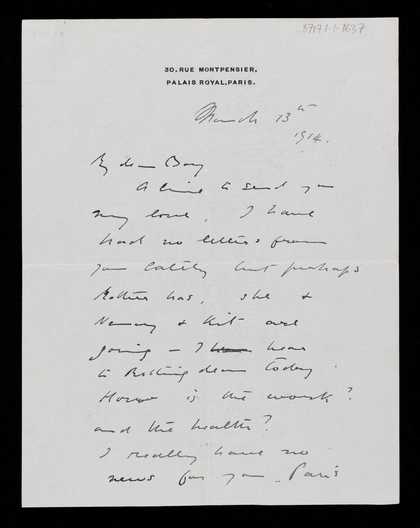 30, RUE MONTPENSIER,
PALAIS ROYAL, PARIS.
March 13th
1914.
My dear Boy
A line to send you
my love. I have
had no letters from
you lately but perhaps
Mother has, she &
& Kit are
going – I hear
to Rottingdean today.
How is the work?
and the health?
I really have no
news for you. Paris